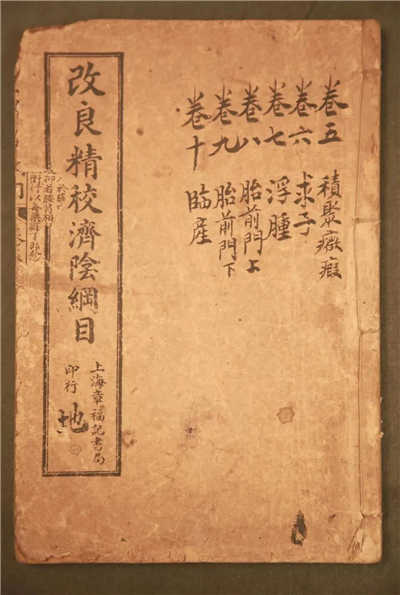 卷五 積聚癥瘕
卷六 求子
卷七 浮腫
卷八 胎前門上
卷九 胎前門下
卷十 臨產
改良精校濟陰綱目
上海章福記書局
印行
地